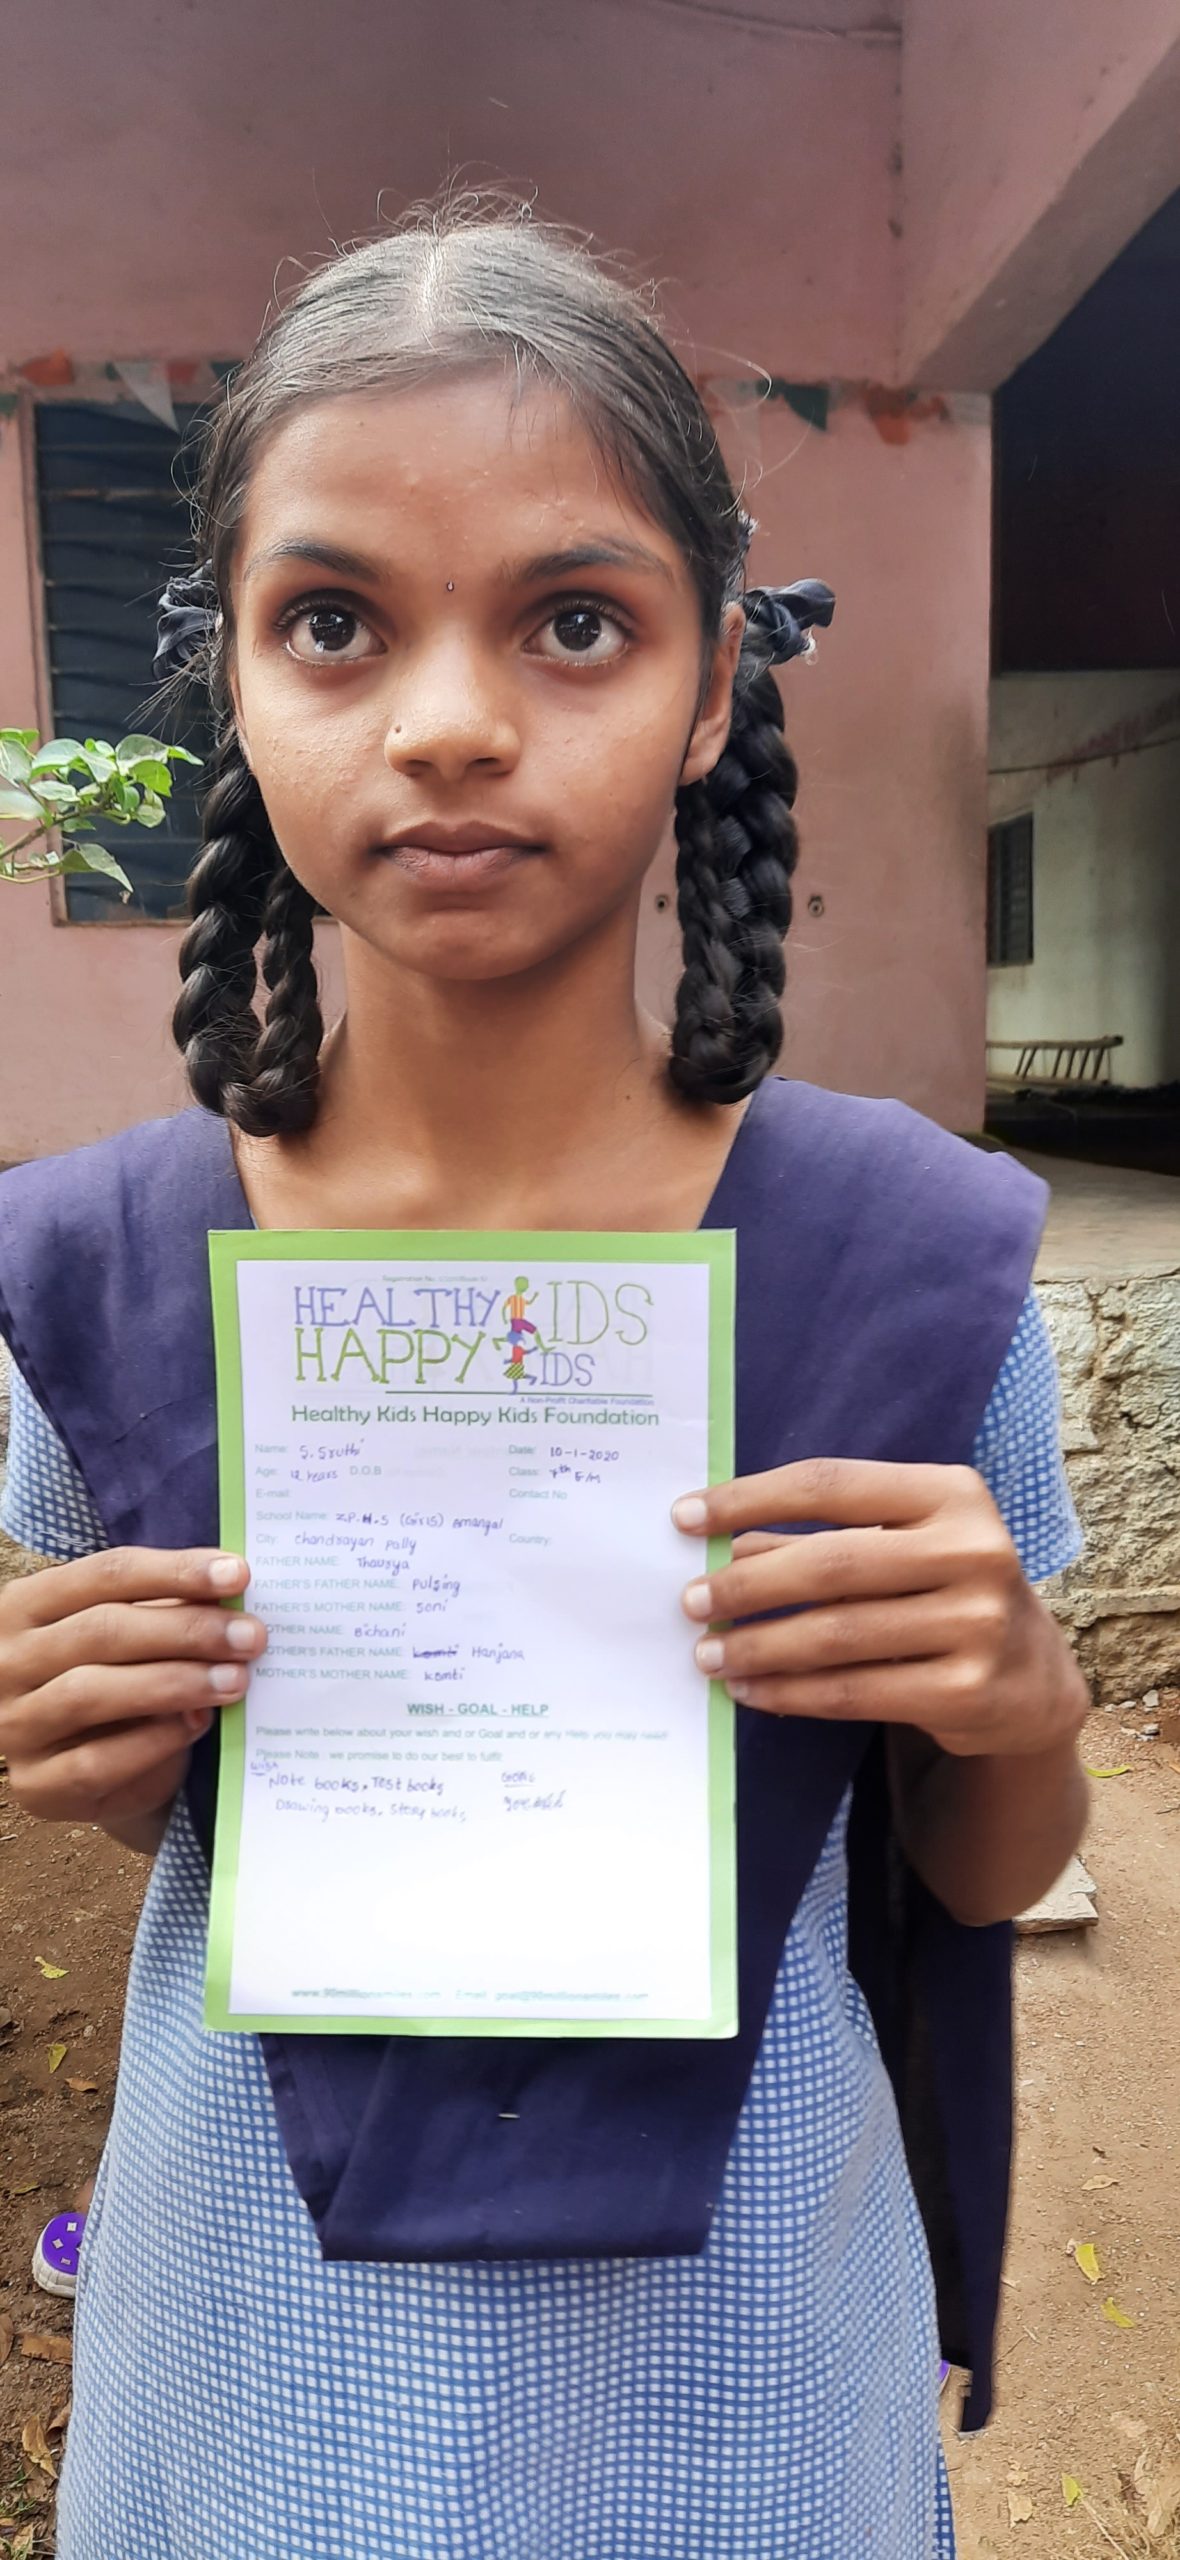 HEALTHY KIDS
HAPPY KIDS
A Non-Profit Charitable Foundation
Healthy Kids Happy Kids Foundation
Name: S. Sruthi Date: 10-1-2020
Age: 12 Years D.O.B Class: 7th E/M
E-mail: Contact No
School Name: Z.P.H.S (Girls) Amangal
City: Chandrayan Pally Country:
FATHER NAME: Thavrya
FATHER'S FATHER NAME: Pulsing
FATHER'S MOTHER NAME: Soni
OTHER NAME: Bichani
OTHER'S FATHER NAME: Komti Hanjana
MOTHER'S MOTHER NAME: Komti
WISH - GOAL - HELP
Please write below about your wish and or Goal and or any Help you may need
Please Note : we promise to do our best to fulfil
Wish
Note books, Test books
Drawing books, Story books
www.90millionsmiles.com Email: goal@90millionsmiles.com